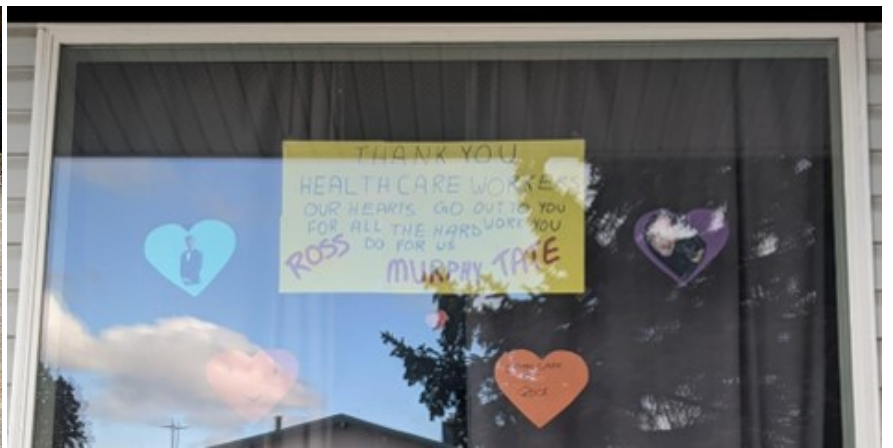 THANK YOU
HEALTHCARE WORKERS
OUR HEARTS GO OUT TO YOU
FOR ALL THE HARD WORK YOU
DO FOR US
ROSS MURPHY TATE